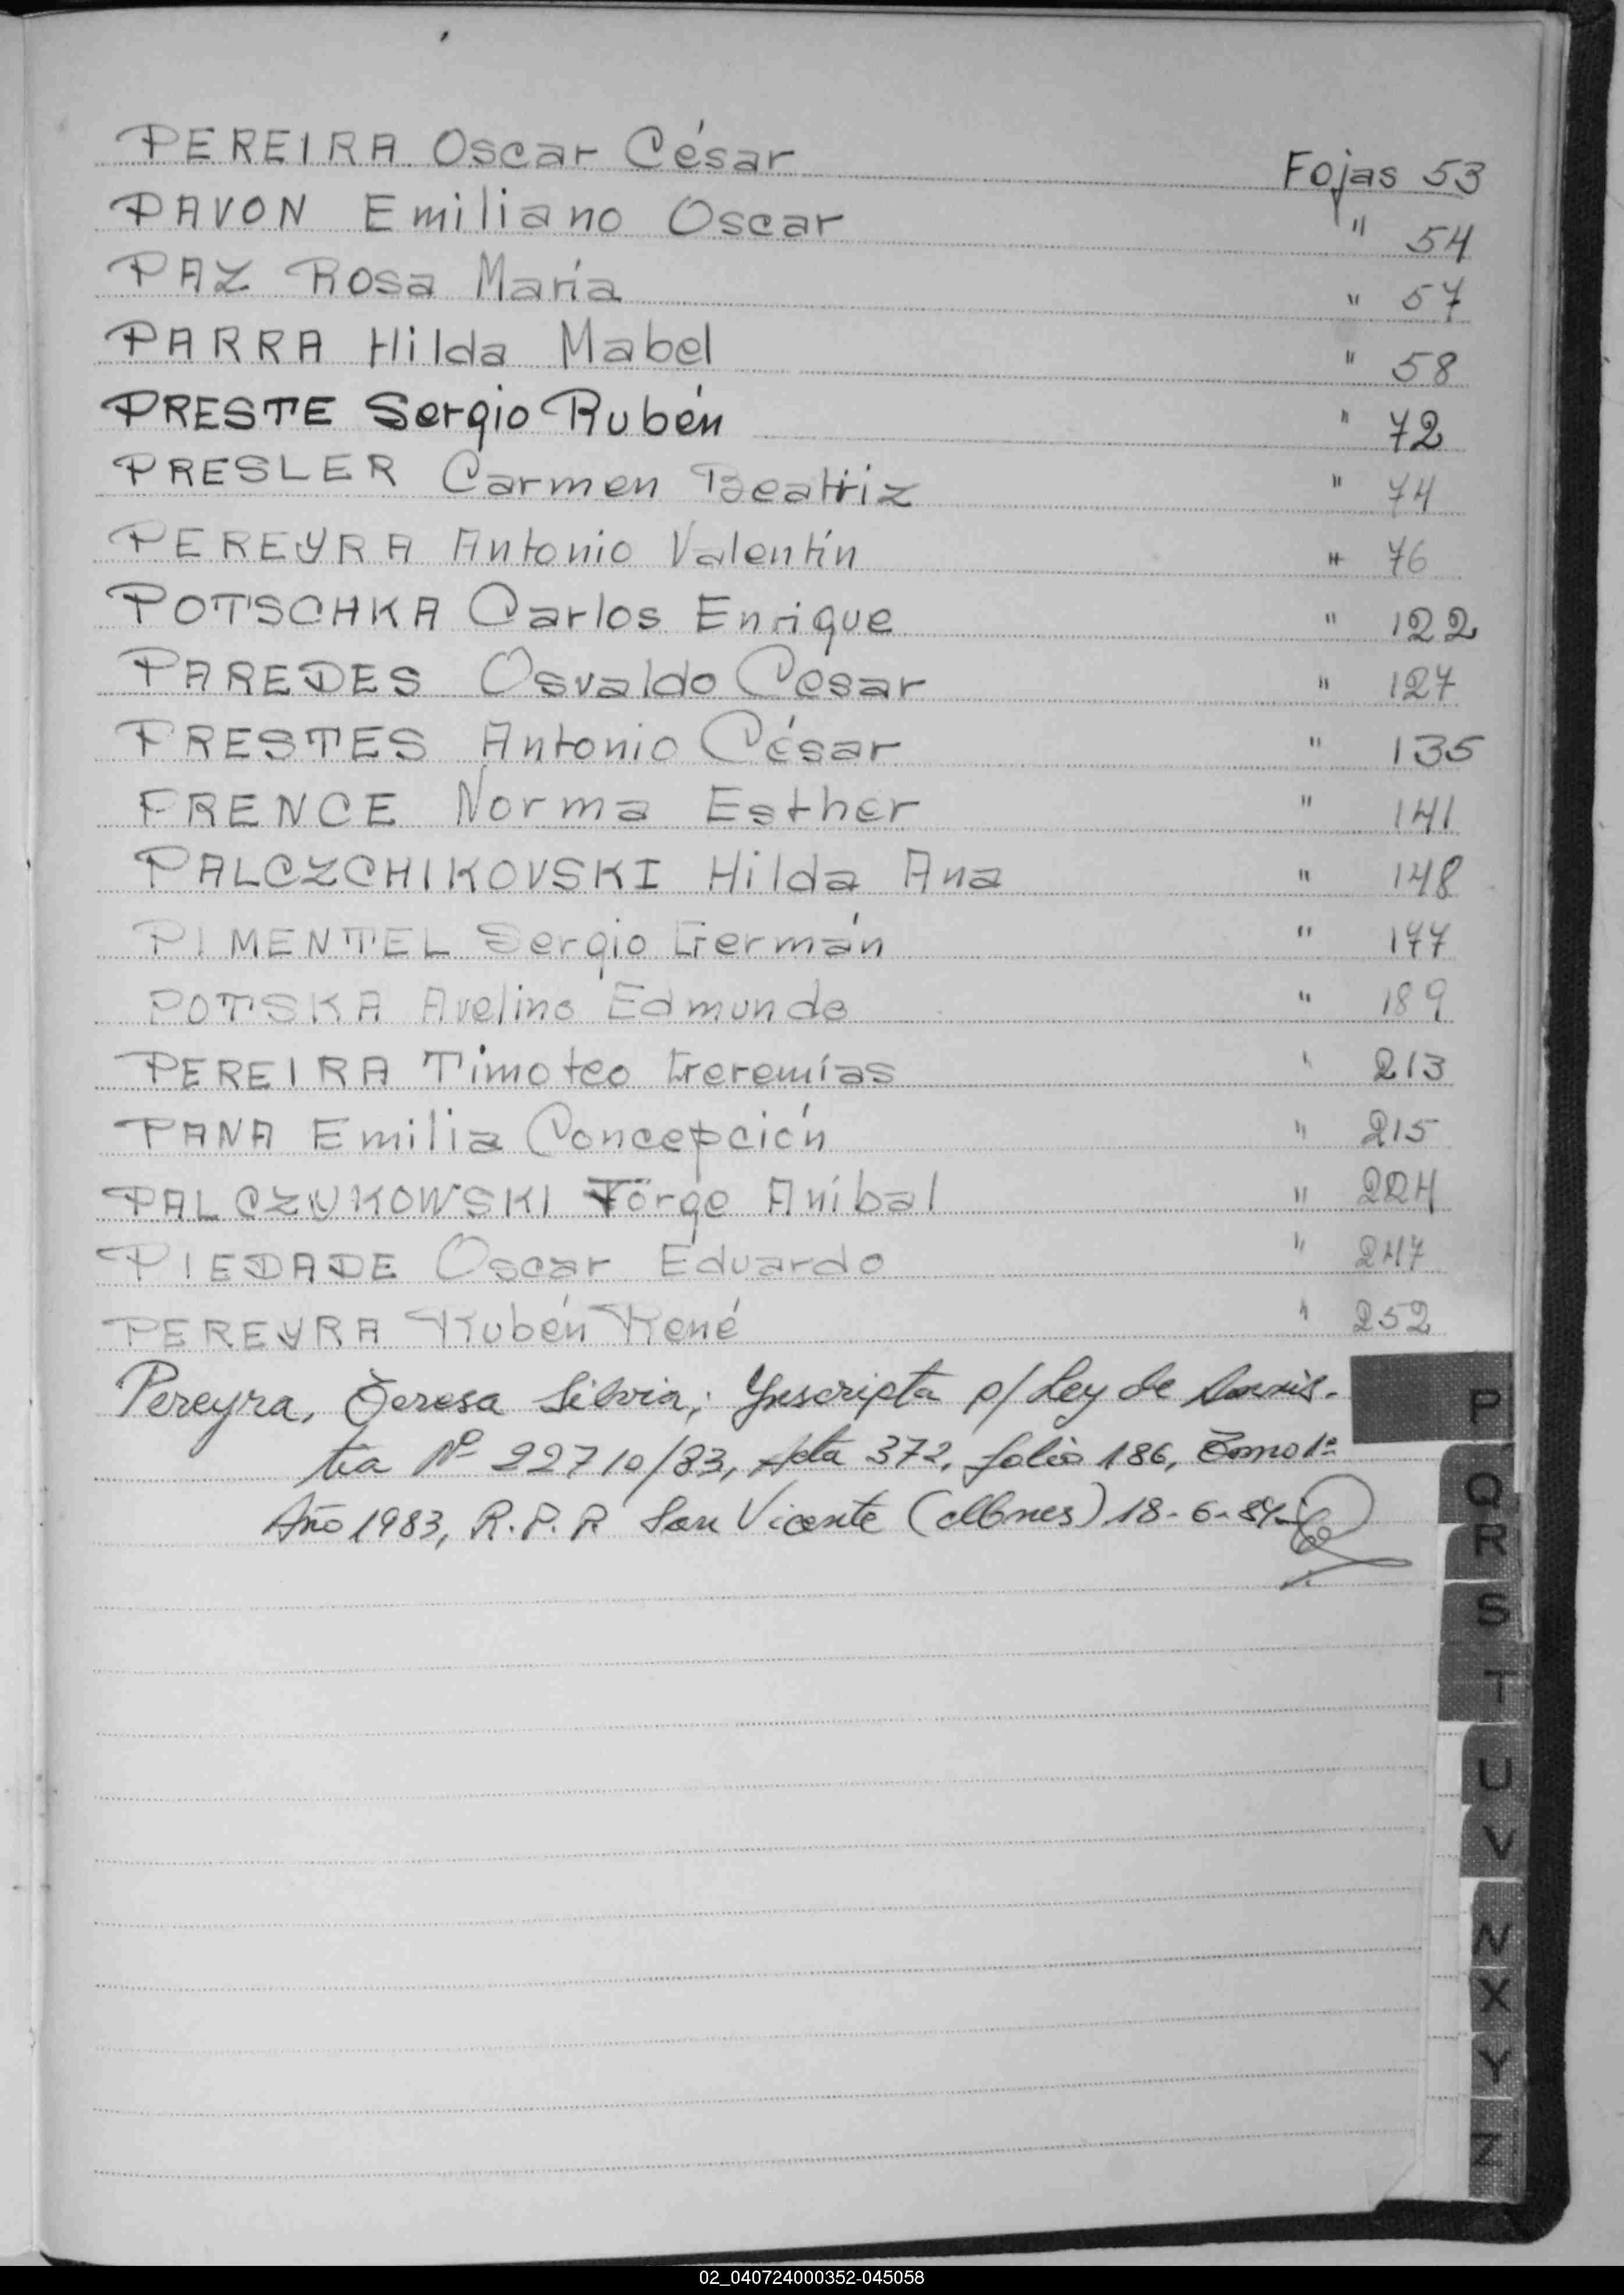 PEREIRA Oscar César Fojas 53
PAVON Emiliano Oscar " 54
PAZ Rosa María " 57
PARRA Hilda Mabel " 58
PRESTE Sergio Rubén " 72
PRESLER Carmen Beatriz " 74
PEREYRA Antonio Valentín " 76
POTSCHKA Carlos Enrique " 122
PAREDES Osvaldo César " 127
PRESTES Antonio César " 135
FRENCE Norma Esther " 141
PALCZCHIKOVSKI Hilda Ana " 148
PIMENTEL Sergio Germán " 177
POTSKA Avelino Edmundo " 189
PEREIRA Timoteo Geremías " 213
PANA Emilia Concepción " 215
PALCZYKOWSKI Jorge Aníbal " 224
PIEDADE Oscar Eduardo " 247
PEREYRA Rubén René " 252
Pereyra, Teresa Silvia; Ynscripta p/ Ley de Amnis-
tia Nº 22710/83, Acta 372, folio 186, Tomo 1º
Año 1983, R.P.P. San Vicente (Mnes) 18-6-84-
P
Q
R
S
T
U
V
W
X
Y
Z
02_040724000352-045058